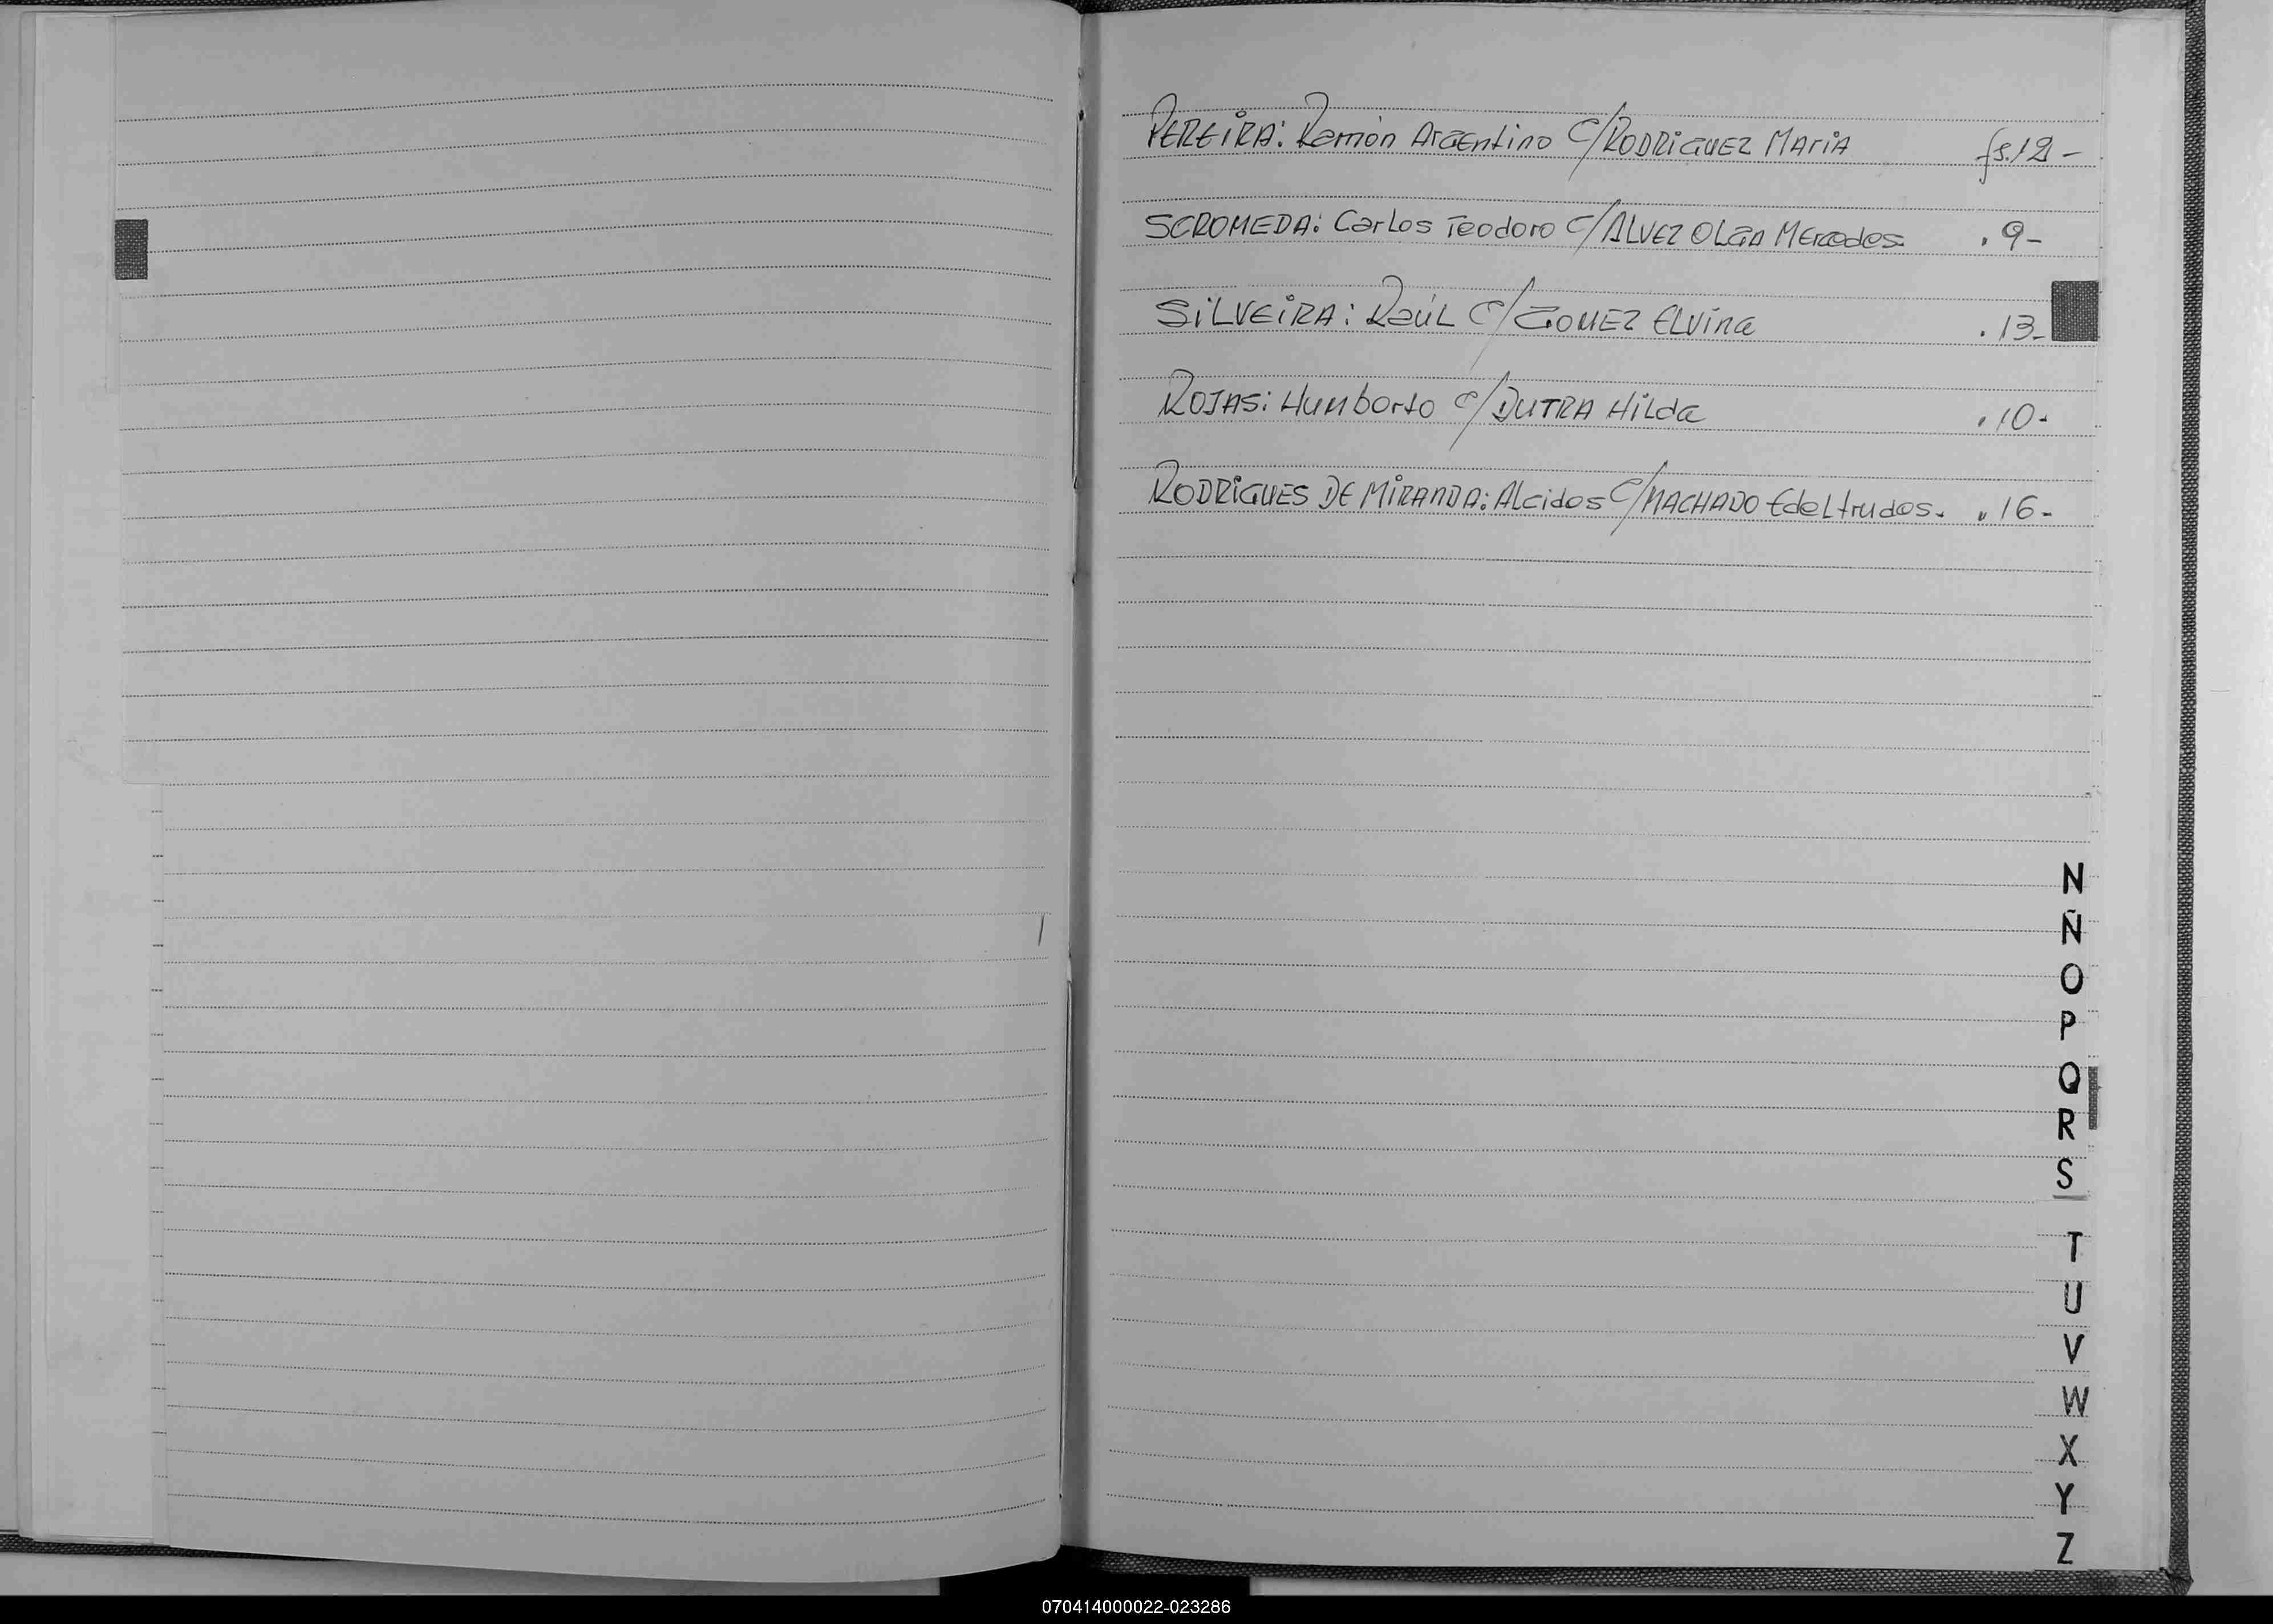 PEREIRA: Ramón Argentino C/RODRIGUEZ MARIA fs.12-
SCROMEDA: Carlos Teodoro C/ALVEZ OLGA Mercedes. " 9-
SILVEIRA: Raúl C/GOMEZ Elvira " 13-
ROJAS: Humberto C/DUTRA Hilda " 10-
RODRIGUES DE MIRANDA: Alcides C/MACHADO Edeltrudes. " 16-
N
Ñ
O
P
Q
R
S
T
U
V
W
X
Y
Z
070414000022-023286